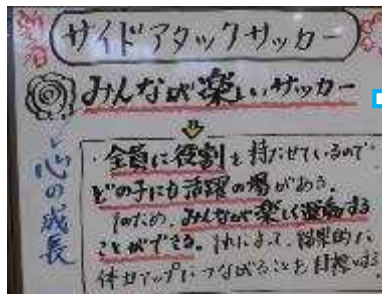 サイドアタックサッカー
みんなが楽しいサッカー
心の成長
・全員に役割を持たせているので
どの子にも活躍の場がある。
そのため、みんなが楽しく運動する
ことができる。それによって、結果的に
体力アップにつなげることも目標とする